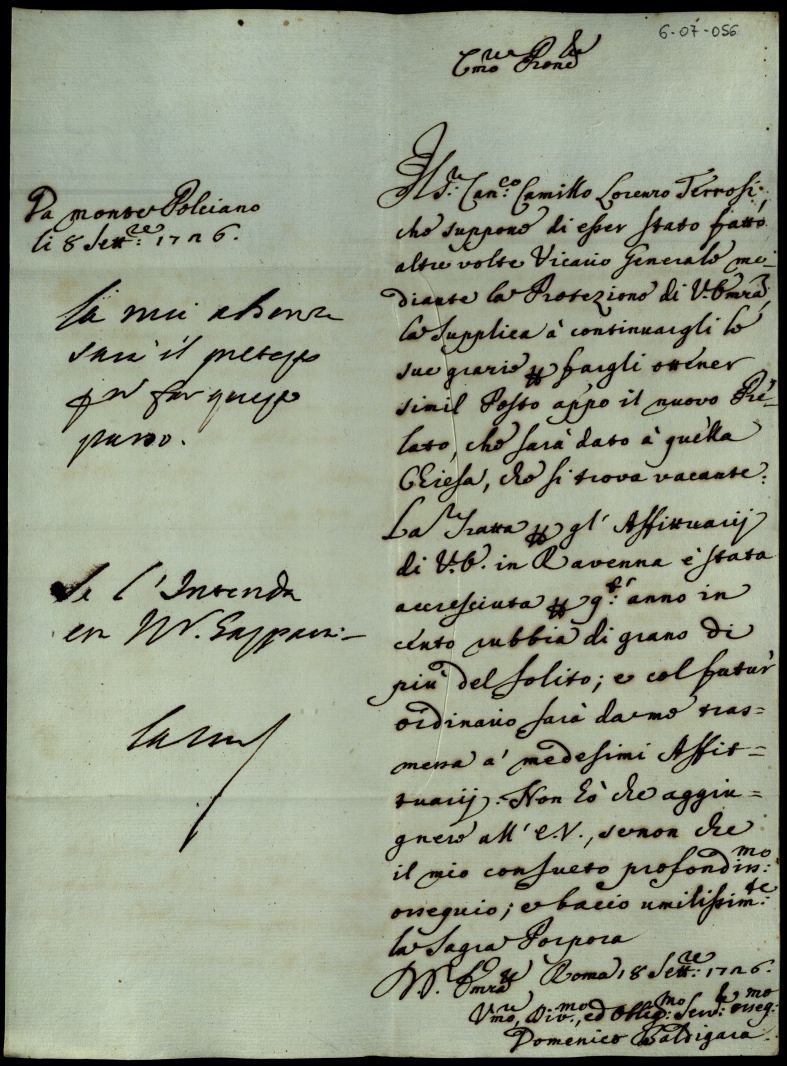 6-07-056
Em̃o Prone
Da monte Polciano
li 8 Settre: 1726.
la mia absenza
sarà il pretesto
per far questo
passo.
Se l'Intenda
en Mr.
Il Sr: Canco: Camillo Lorenzo Terrosi
che suppone di esser stato fatto
altre volte Vicario Generale me-
diante la Protezione di V: Emza,
la supplica à continuargli le
sue grazie ꝑ fargli ottener
simil Posto appo il nuovo Pre-
lato, che sarà dato à quella
Chiesa, che si trova vacante:
La Tratta ꝑ gl'Affittuarij
di V.E. in Ravenna è stata
accresciuta ꝑ qto: anno in
cento rubbia di grano di
più del solito; e col futur'
ordinario sarà da me tras=
messa a' medesimi Affit=
tuarij. Non hò che aggiu=
gnere all'E.V., senon che
il mio consueto profondissmo:
ossequio; e bacio umilissimte:
la Sagra Porpora
Roma 18 Settre: 1726.
Vmo, Divmo:, ed Obligmo: Serre: osseqmo:
Domenico Baldigara